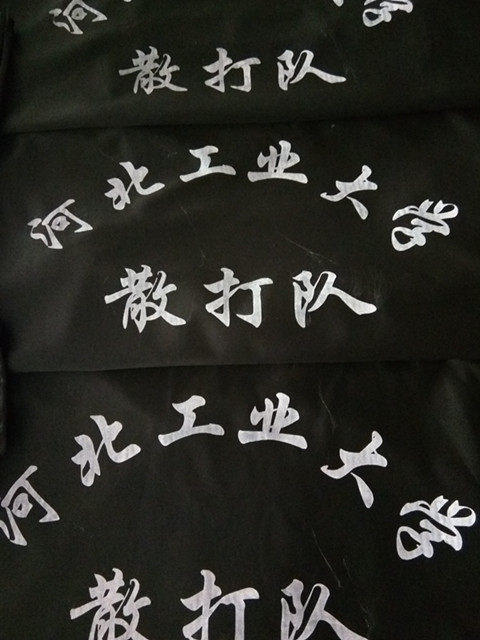 河
散打队
河北工业大学
散打队
河北工业大学
散打队